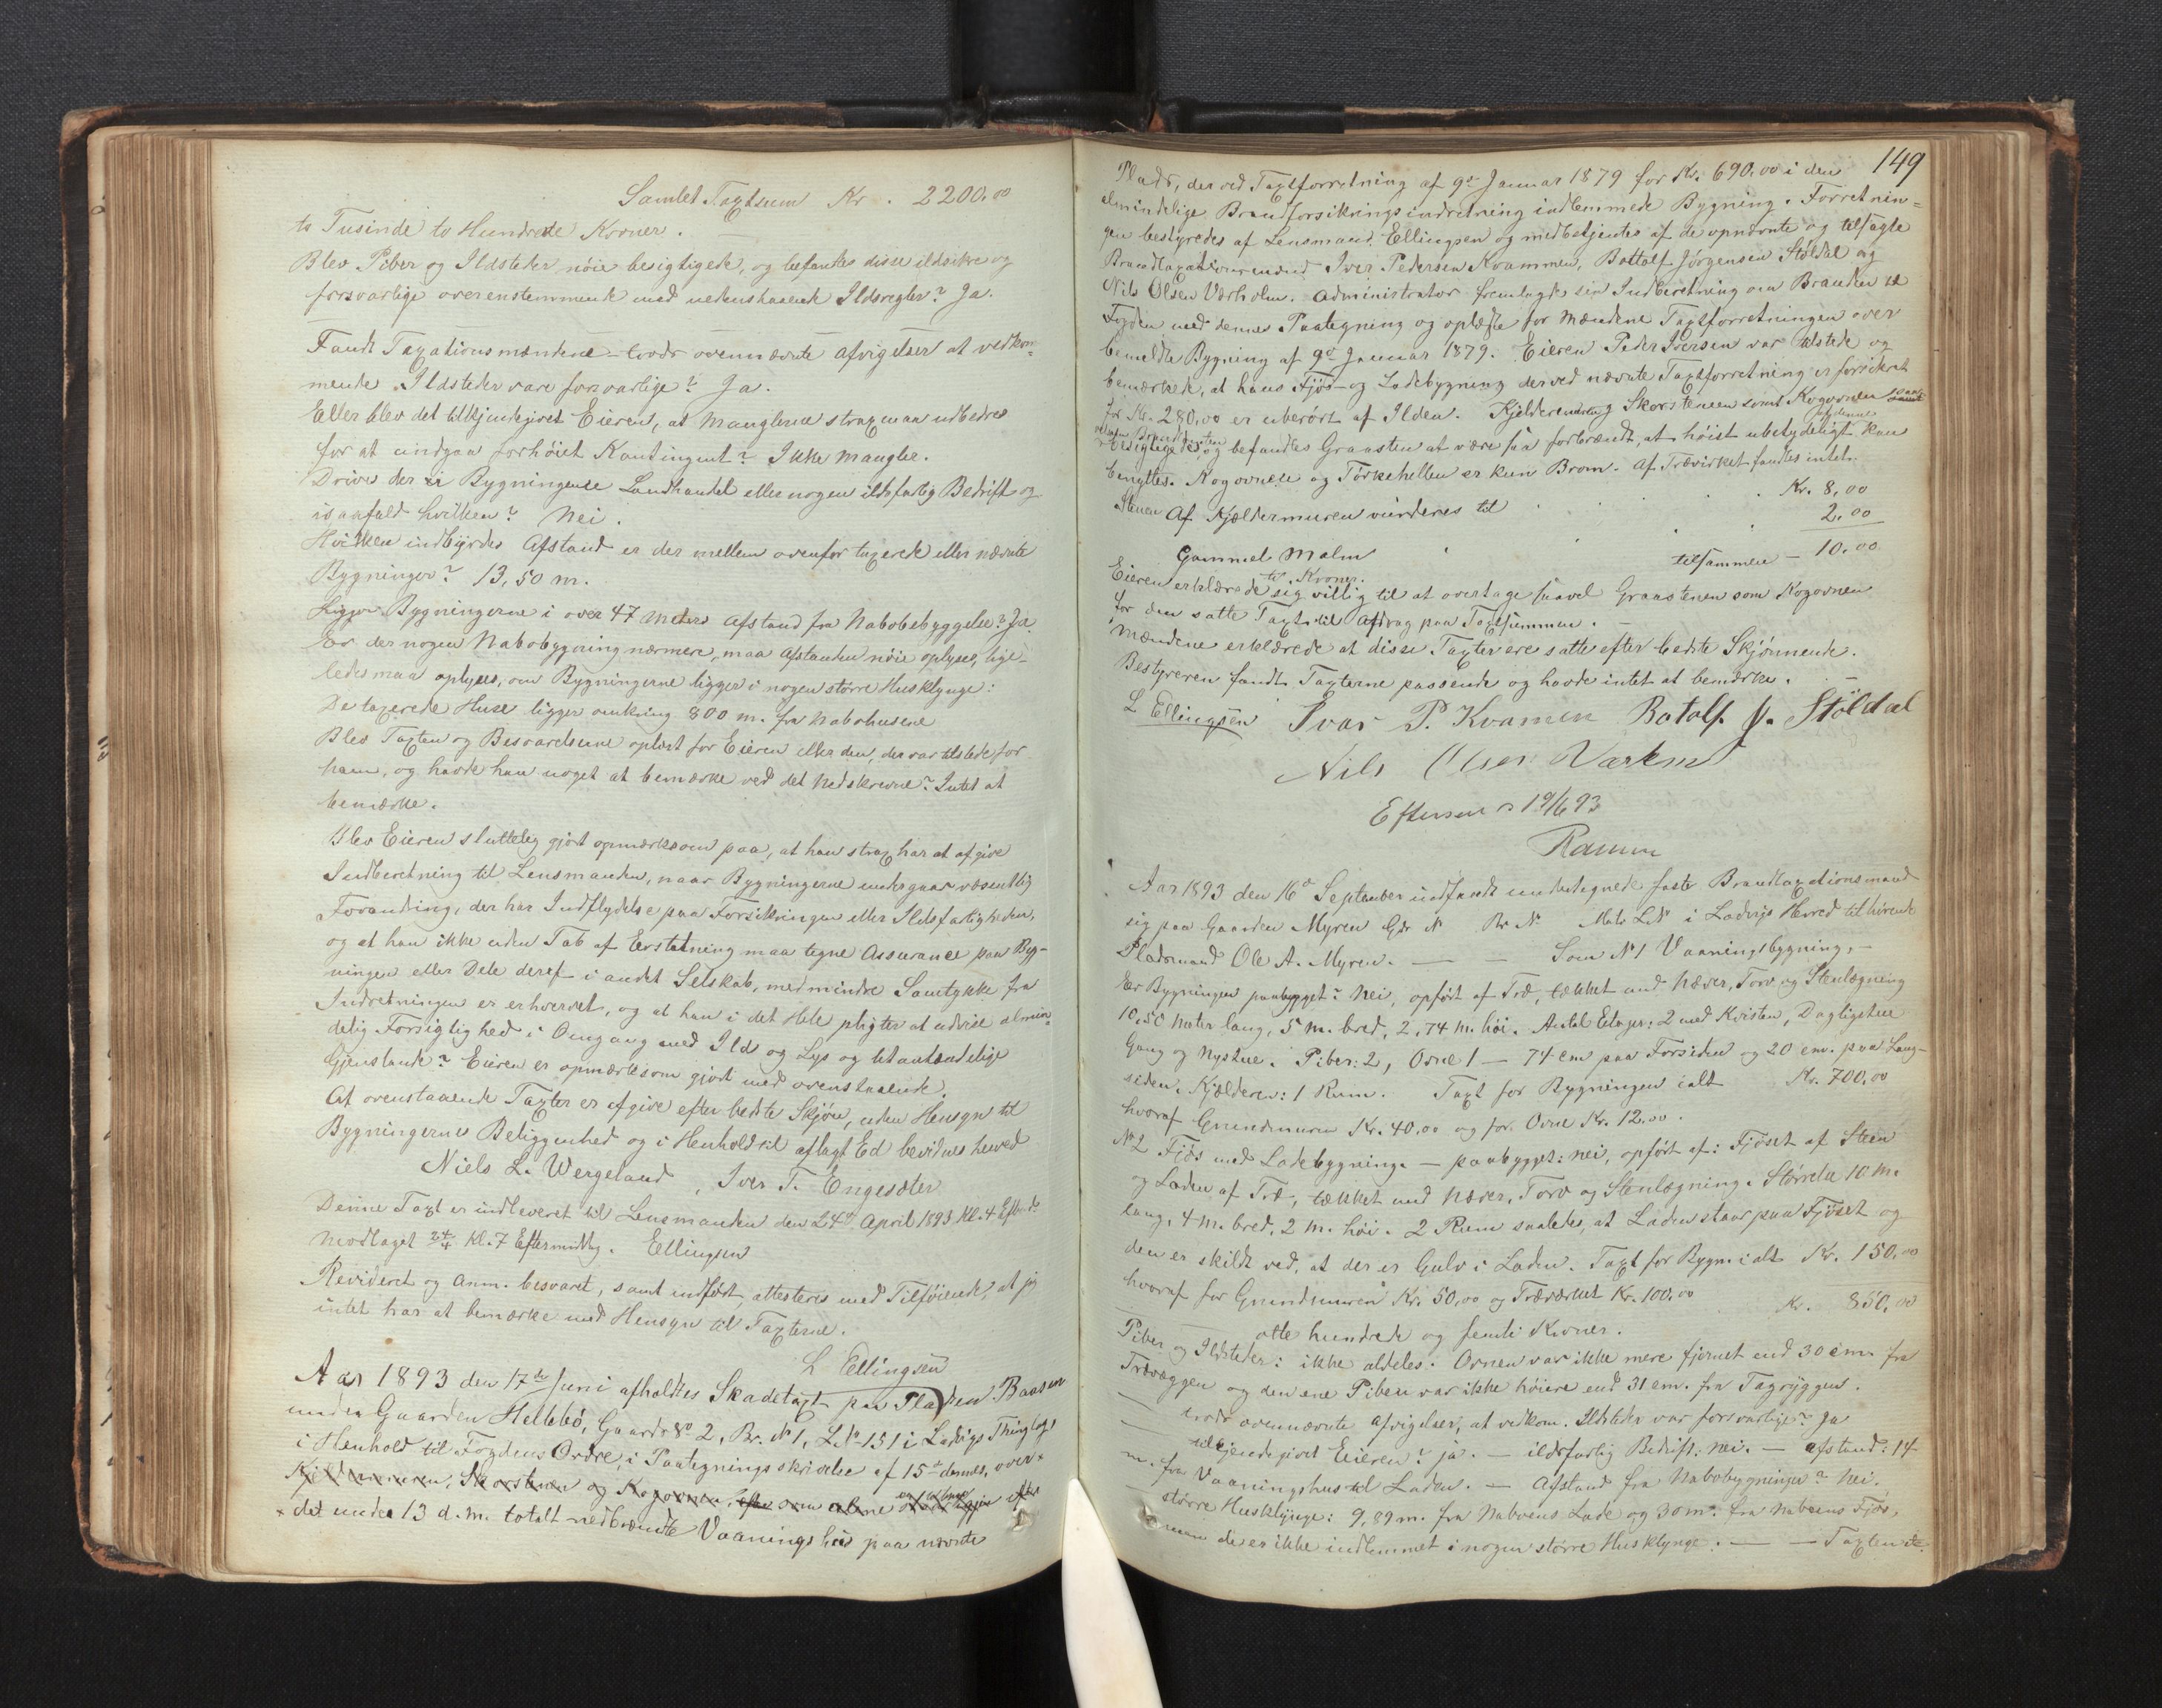 Samlet Taxtsum Kr. 2200.00
to Tusinde to Hundrede Kroner.
Blev Piber og Ildsteder nöie besigtigede, og befantes disse ildsikre og
forsvarlige overenstemmende med nedenstaaende Ildsregler? Ja.
Fandt Taxationsmændene trods ovennævnte Afvigelser at vedkom-
mende Ildsteder vare forsvarlige? Ja.
Eller blev det tilkjendegivet Eieren, at Manglerne strax maa udbedres
for at undgaa forhöiet Kontingent? Ikke Mangler.
Drives der i Bygningerne Landhandel eller nogen ildsfarlig Bedrift og
isaafald hvilken? Nei.
Hvilken indbyrdes Afstand er der mellem ovenfor taxerede eller nævnte
Bygninger? 13,50 m.
Ligger Bygningerne i over 47 Meters Afstand fra Nabobebyggelse? Ja.
Er der nogen Nabobygning nærmere, maa Afstanden nöie oplyses, lige-
ledes maa oplyses, om Bygningerne ligger i nogen större Husklynge:
De taxerede Huse ligger omkring 800 m. fra Nabohusene
Blev Taxten og Besvarelserne oplæst for Eieren eller den, der var tilstede for
ham, og havde han noget at bemærke ved det Nedskrevne? Intet at
bemærke.
Blev Eieren sluttelig gjort opmærksom paa, at han strax har at afgive
Indberetning til Lensmanden, naar Bygningerne undergaar væsentlig
Forandring, der har Indflydelse paa Forsikringen eller Ildsfarligheden,
og at han ikke uden Tab af Erstatning maa tegne Assurance paa Byg-
ningen eller Dele deraf i andet Selskab, medmindre Samtykke fra
Indretningen er erhvervet, og at han i det Hele pligter at udvise almin-
delig Forsiglighed i Omgang med Ild og Lys og letantændelige
Gjenstande? Eieren er opmærksom gjort med ovenstaaende.
At ovenstaaende Taxter er afgive efter bedste Skjön, uden Hensyn til
Bygningernes Beliggenhed og i Henhold til aflagt Ed bevidnes herved
Niels L. Wergeland, Iver T. Engesæter
Denne Taxt er indleveret til Lensmanden den 24de April 1893 Kl. 4 Efterm.
Modtaget 24/4 Kl. 7 Eftermiddag. Ellingsen
Revideret og Anm. besvaret, samt indfört, attesteres med Tilföiende, at jeg
intet har at bemærke med Hensyn til Taxterne.
L Ellingsen
Aar 1893 den 17de Juni afholdtes Skadetaxt paa Pladsen Baasen
under Gaarden Hellebö, Gaards No 2, Br. No 1, L No 151 i Ladvigs Thinglag
i Henhold til Fogdens Ordre, i Paategningsskrivelse af 15de dennes, over ×
Kjeldermuren, Skorstenen og Kogovnen, som alene
× det under 13 d.m. totalt nedbrændte Vaaningshus paa nævnte
149
Plads, der ved Taxtforretning af 9de Januar 1879 for Kr. 690.00 i den
almindelige Brandforsikringsindretning indlemmede Bygning. Forretnin-
gen bestyredes af Lensmand Ellingsen og medbetjentes af de opnævnte og tilsagte
Brandtaxationsmænd Iver Pedersen Kvammen, Bottolf Jörgensen Stöldal og
Nils Olsen Værholm. Administrator fremlagde sin Indberetning om Branden til
Fogden med dennes Paategning og oplæste for Mændene Taxtforretningen over
bemeldte Bygning af 9de Januar 1879. Eieren Peder Iversen var tilstede og
bemærkede, at hans Fjös- og Ladebygning der ved nævnte Taxtforretning er forsikret
for Kr. 280,00 er uberört af Ilden. Kjelderen og Skorstenen samt Kogovnen
besigtigedes, og befandtes Graasten at være saa forbrændt, at höist ubetydeligt kan
benyttes. Kogovnen og Törkehellen er kun Brom. Af Trævirket fandtes intet.
Stenen Af Kjældermuren vurderes til Kr. 8,00
Gammel Malm 2.00
tilsammen - 10.00
ti Kroner.
Eieren erklærede sig villig til at overtage saavel Graastenen som Kogovnen
for den satte Taxt til Afdrag paa Taxtsummen.
Mændene erklærede at disse Taxter ere satte efter bedste Skjönnende.
Bestyreren fandt Taxterne passende og havde intet at bemærke.
L Ellingsen Ivar P. Kvamen Botolf J. Stöldal
Nils Olsen Værhm
Efterseet 19/6 93
Aar 1893 den 16de September indfandt undertegnede faste Brandtaxationsmænd
sig paa Gaarden Myren Gds No Br No Matr L No i Ladvigs Herred tilhörende
Pladsmand Ole A. Myren. — Som No 1 Vaaningsbygning. —
Er Bygningen paabygget? Nei, opfört af Træ, tækket med Næver, Torv og Stenlægning
10,50 Meter lang, 5 m. bred, 2,74 m. höi. Antal Etager: 2 med Kvisten, Dagligstue
Gang og Nystue. Piber: 2, Ovne 1 — 74 cm paa Forsiden og 20 cm. paa Lang-
siden. Kjælderen: 1 Rum. Taxt for Bygningen ialt Kr. 700,00
hvoraf Grundmuren Kr. 40,00 og for Ovne Kr. 12.00.
No 2 Fjös med Ladebygning. — paabygget: nei, opfört af: Fjöset af Steen
og Laden af Træ, tækket med Næver, Torv og Stenlægning. Störrelse 10 M.
lang, 4 m. bred, 2 m. höi. 2 Rum saaledes, at Laden staar paa Fjöset og
den er skildt ved, at der er Gulv i Laden. Taxt for Bygn. ialt Kr. 150.00
hvoraf for Grundmuren Kr. 50,00 og Træværket Kr. 100.00
Kr. 850.00
otte hundrede og femti Kroner.
Piber og Ildsteder: ikke aldeles. Ovnen var ikke mere fjernet end 30 cm. fra
Trævæggen og den ene Piben var ikke höiere end 31 cm. fra Tagryggen.
— trods ovennævnte Afvigelser, at vedkom. Ildsteder var forsvarlige? Ja
— tilkjendegivet Eieren? ja. — ildsfarlig Bedrift: nei. — Afstand: 14
m. fra Vaaningshus til Laden. — Afstand fra Nabobygninger? Nei,
större Husklynge: 9,89 m. fra Naboens Lade og 30 m. fra Naboens Fjös,
men de er ikke indlemmet i nogen större Husklynge. — — Taxten etc.